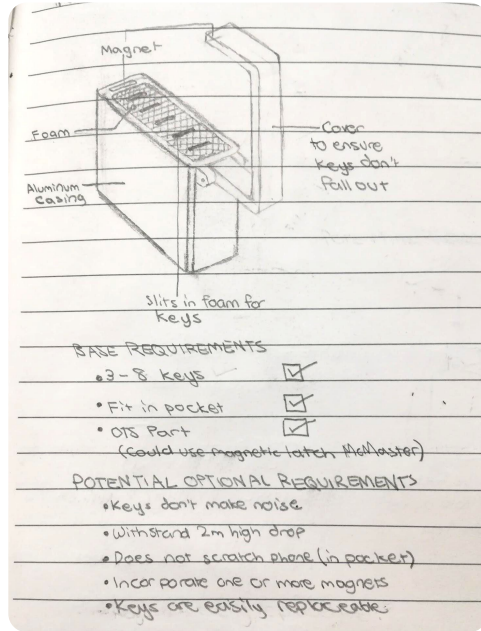 Magnet
Foam
Aluminum
casing
Cover
to ensure
keys don't
fall out
Slits in foam for
keys
BASE REQUIREMENTS
• 3-8 keys
• Fit in pocket
• OTS Part
(Could use magnetic latch McMaster)
POTENTIAL OPTIONAL REQUIREMENTS
• Keys don't make noise
• Withstand 2m high drop
• Does not scratch phone (in pocket)
• Incorporate one or more magnets
• Keys are easily replaceable